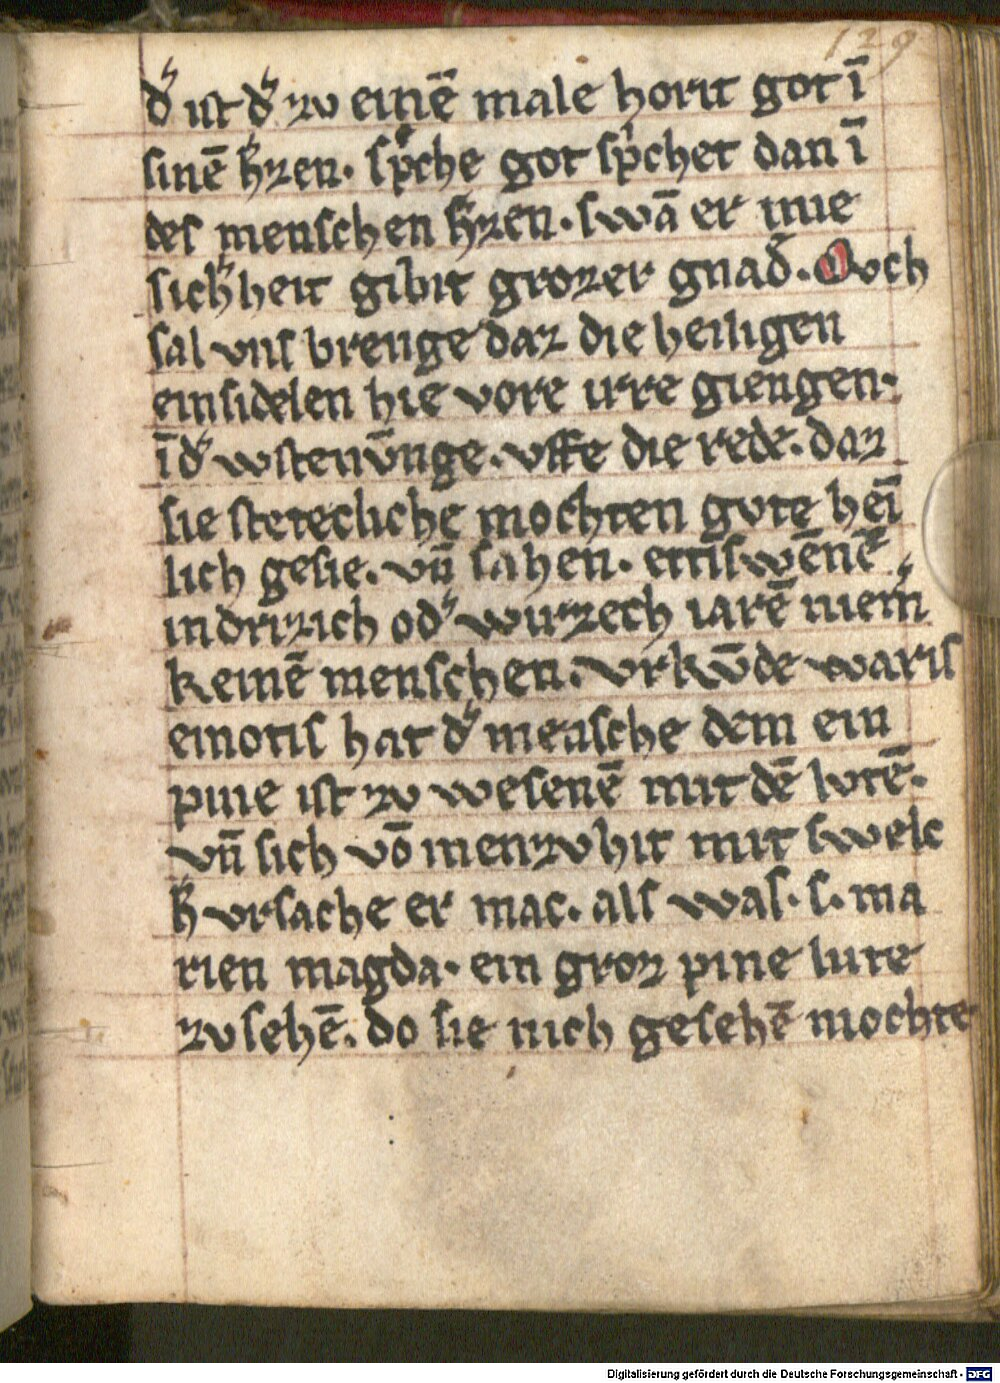 129
d͛ ist d͛ zv einē male horit got ī
sinē h͛zen. sp͛che got sp͛chet dan ī
des menschen h͛zen. swā er mie
sich͛heit gibit grozer gnad͛. Ovch
sal vns brenge daz die heiligen
einsidelen hie vore irre giengen.
ī d͛ wstenv̄nge. vffe die rede. daz
sie stetecliche mochten gote hei
lich gesie. vn̄ sahen. etiswēnē
in drizich od͛ wirzech iarē niem͛
keinē menschen. vrkv̄de waris
einotis hat d͛ mensche dem ein
pine ist zv wesenē mit dē lvtē.
vn̄ sich vō men zvhit mit swelc
h͛ vrsache er mac. als was. s. ma
rien magda. ein groz pine lvte
zv sehē. do sie nich gesehē mochte
Digitalisierung gefördert durch die Deutsche Forschungsgemeinschaft - DFG